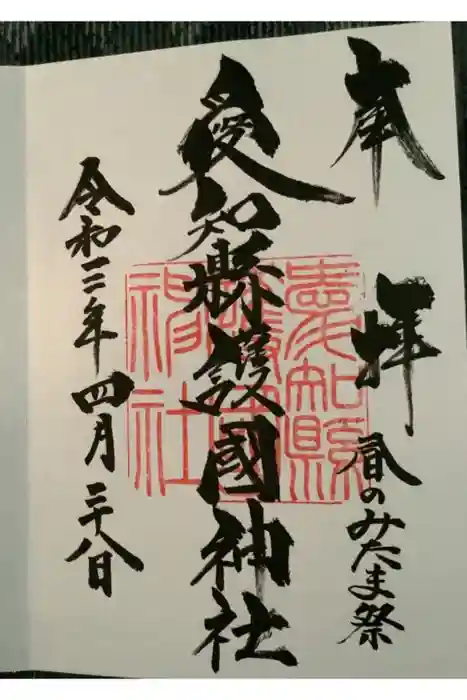 奉拝
春のみたま祭
愛知縣護國神社
愛知縣護國神社
令和三年四月二十八日